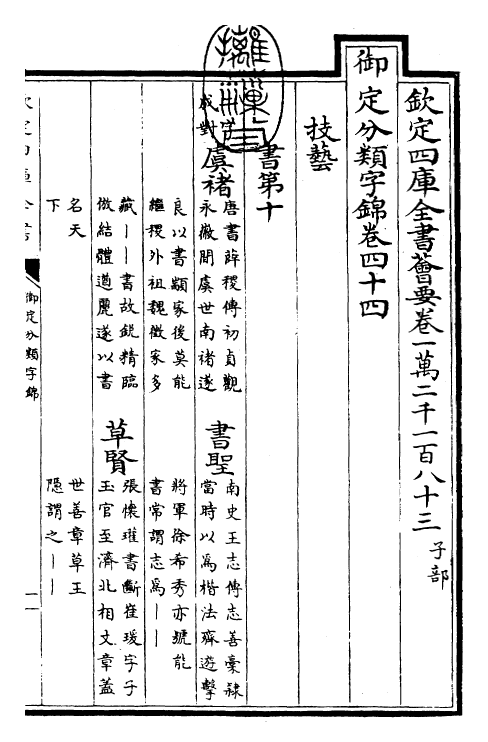 欽定四庫全書薈要卷一萬二千一百八十三 子部
御定分類字錦卷四十四
技藝
書第十
成對
虞褚 唐書薛稷傳初貞觀
永徽間虞世南褚遂
良以書顓家後莫能
繼稷外祖魏徵家多
藏——書故鋭精臨
倣結體遒麗遂以書
名天
下
書聖 南史王志傳志善稾隸
當時以為楷法齊遊擊
將軍徐希秀亦號能
書常謂志為——
草賢 張懷瓘書斷崔瑗字子
玉官至濟北相文章蓋
世善章草王
隱謂之——
御定分類字錦
一